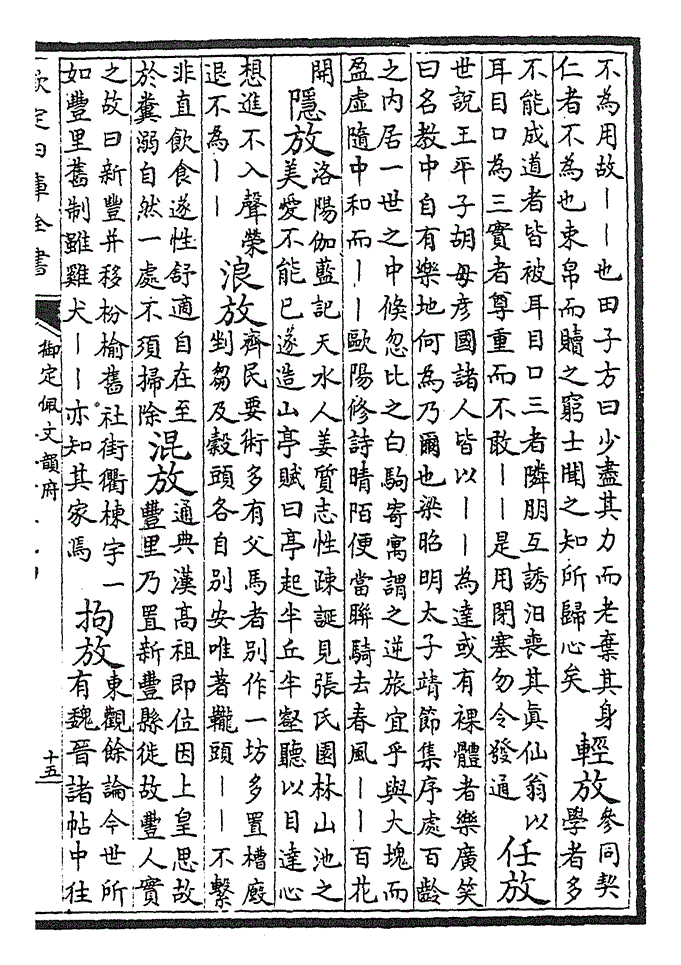 不為用故｜｜也田子方曰少盡其力而老棄其身
仁者不為也束帛而贖之窮士聞之知所歸心矣
輕放
參同契
學者多
不能成道者皆被耳目口三者隣朋互誘汨喪其眞仙翁以
耳目口為三寳者尊重而不敢｜｜是用閉塞勿令發通
任放
世說王平子胡母彦國諸人皆以｜｜為達或有裸體者樂廣笑
曰名教中自有樂地何為乃爾也梁昭明太子靖節集序處百齡
之内居一世之中倏忽比之白駒寄寓謂之逆旅宜乎與大塊而
盈虛隨中和而｜｜歐陽修詩晴陌便當聯騎去春風｜｜百花
開
隱放
洛陽伽藍記天水人姜質志性疎誕見張氏園林山池之
美愛不能已遂造山亭賦曰亭起半丘半壑聽以目達心
想進不入聲榮
退不為｜｜
浪放
齊民要術多有父馬者別作一坊多置槽廄
剉芻及穀頭各自別安唯著韁頭｜｜不繫
非直飲食遂性舒適自在至
於糞溺自然一處不須掃除
混放
通典漢高祖即位因上皇思故
豐里乃置新豐縣徙故豐人實
之故曰新豐并移枌榆舊社街衢棟宇一
如豐里舊制雖雞犬｜｜亦知其家焉
拘放
東觀餘論今世所
有魏晉諸帖中往
欽定四庫全書
御定佩文韻府
十五